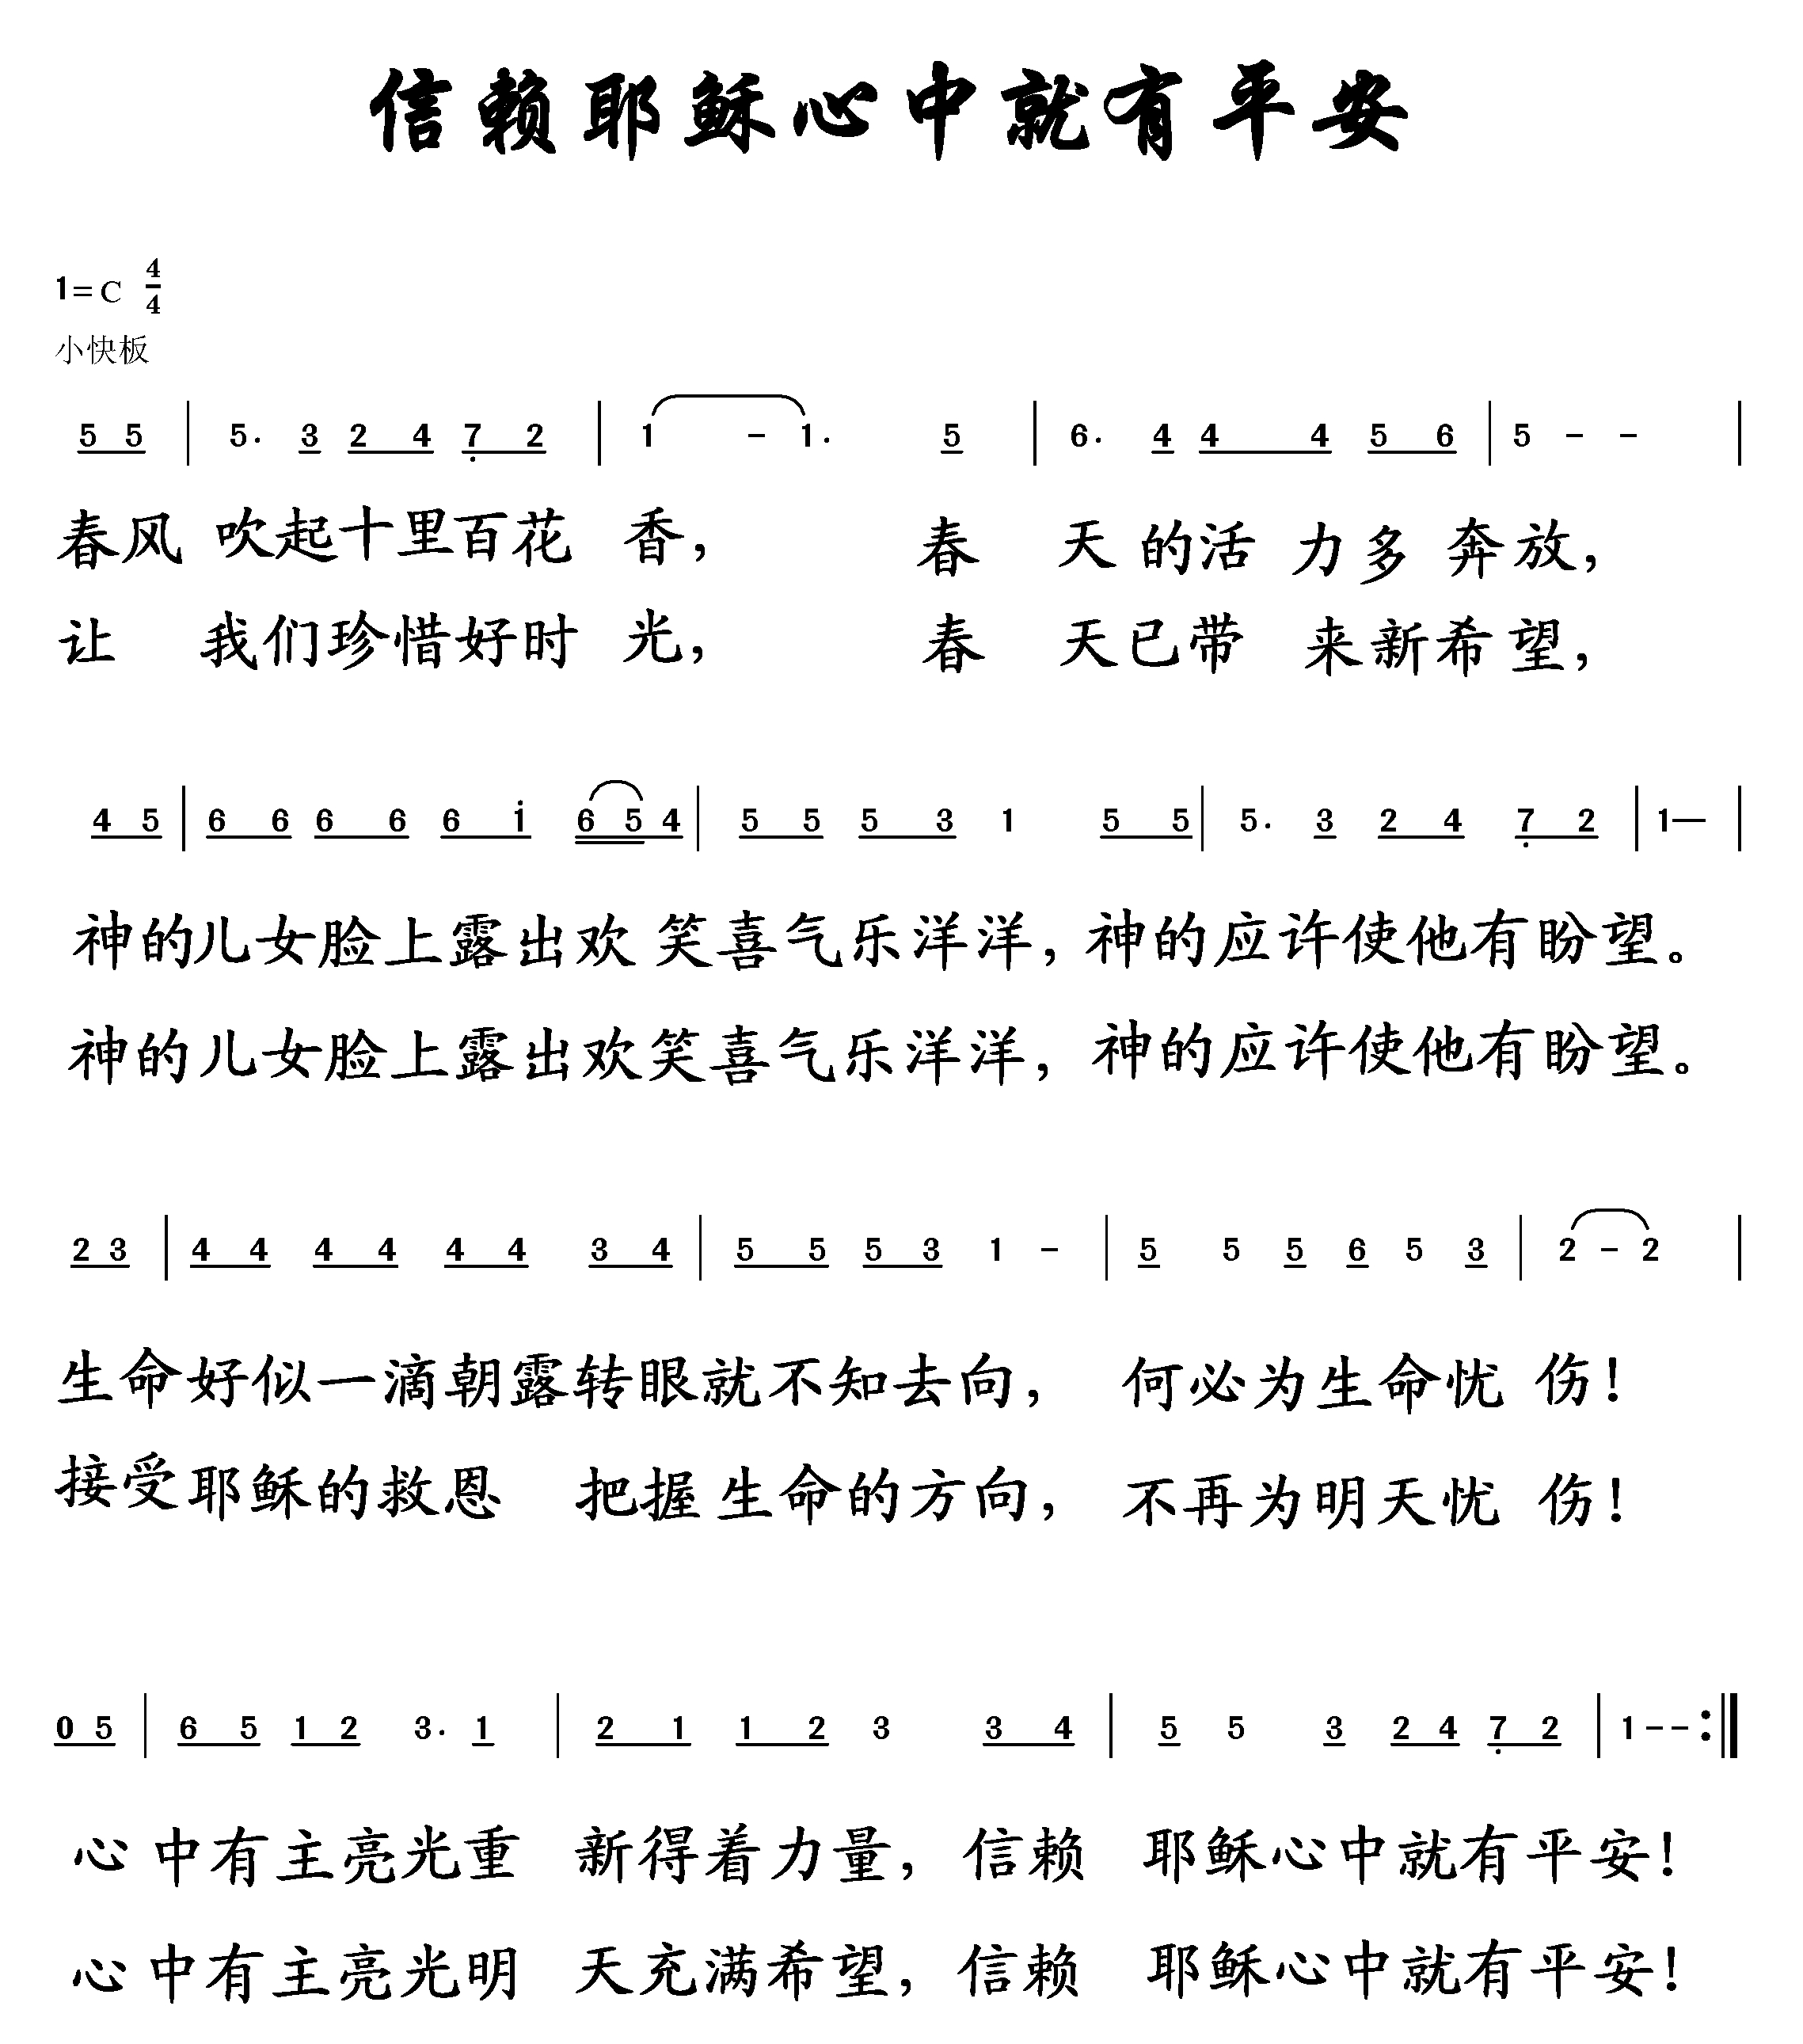 信赖耶稣心中就有平安
1=C 4/4
小快板
5 5 | 5. 3 2 4 7̣ 2 | 1 - 1. 5 | 6. 4 4 4 5 6 | 5 - - |
春风 吹起十里百花 香， 春 天 的活 力多 奔放，
让 我们珍惜好时 光， 春 天已带 来新希望，
4 5 | 6 6 6 6 6 i 6 5 4 | 5 5 5 3 1 5 5 | 5. 3 2 4 7̣ 2 | 1— |
神的儿女脸上露出欢 笑喜气乐洋洋，神的应许使他有盼望。
神的儿女脸上露出欢笑喜气乐洋洋，神的应许使他有盼望。
2 3 | 4 4 4 4 4 4 3 4 | 5 5 5 3 1 - | 5 5 5 6 5 3 | 2 - 2 |
生命好似一滴朝露转眼就不知去向， 何必为生命忧 伤！
接受耶稣的救恩 把握生命的方向， 不再为明天忧 伤！
0 5 | 6 5 1 2 3. 1 | 2 1 1 2 3 3 4 | 5 5 3 2 4 7̣ 2 | 1 - - :|
心 中有主亮光重 新得着力量，信赖 耶稣心中就有平安！
心 中有主亮光明 天充满希望，信赖 耶稣心中就有平安！